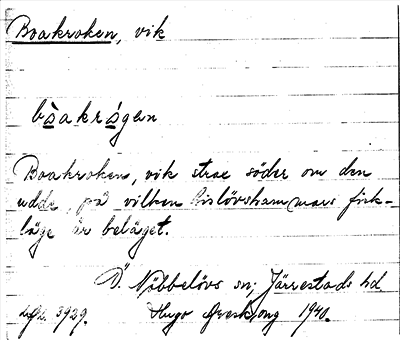 Boakroken, vik
bòakrógen
Boakroken, vik strax söder om den
udde, på vilken Gislövshammars fisk-
läge är beläget.
Ö. Nöbbelövs sn; Järrestads hd
3929. Hugo Areskoug 1940.